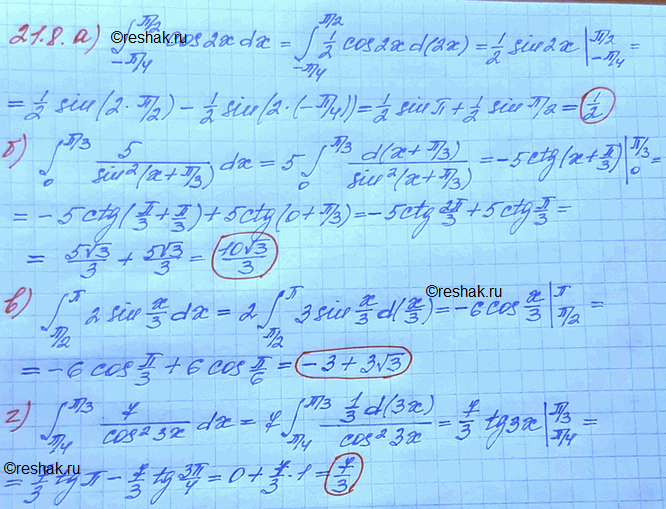 ©reshak.ru
21.8. а) ∫_{-π/4}^{π/2} cos2x dx = ∫_{-π/4}^{π/2} 1/2 cos2x d(2x) = 1/2 sin2x |_{-π/4}^{π/2} =
= 1/2 sin(2·π/2) - 1/2 sin(2·(-π/4)) = 1/2 sin π + 1/2 sin π/2 = 1/2
б) ∫_0^{π/3} 5/sin²(x+π/3) dx = 5 ∫_0^{π/3} d(x+π/3)/sin²(x+π/3) = -5ctg(x+π/3)|_0^{π/3} =
= -5ctg(π/3+π/3) + 5ctg(0+π/3) = -5ctg 2π/3 + 5ctg π/3 =
= 5√3/3 + 5√3/3 = 10√3/3
©reshak.ru
в) ∫_{π/2}^{π} 2 sin x/3 dx = 2 ∫_{π/2}^{π} 3 sin x/3 d(x/3) = -6cos x/3 |_{π/2}^{π} =
= -6 cos π/3 + 6 cos π/6 = -3+3√3
г) ∫_{π/4}^{π/3} 7/cos²3x dx = 7 ∫_{π/4}^{π/3} 1/3 d(3x)/cos²3x = 7/3 tg3x |_{π/4}^{π/3} =
©reshak.ru
= 7/3 tg π - 7/3 tg 3π/4 = 0 + 7/3 · 1 = 7/3